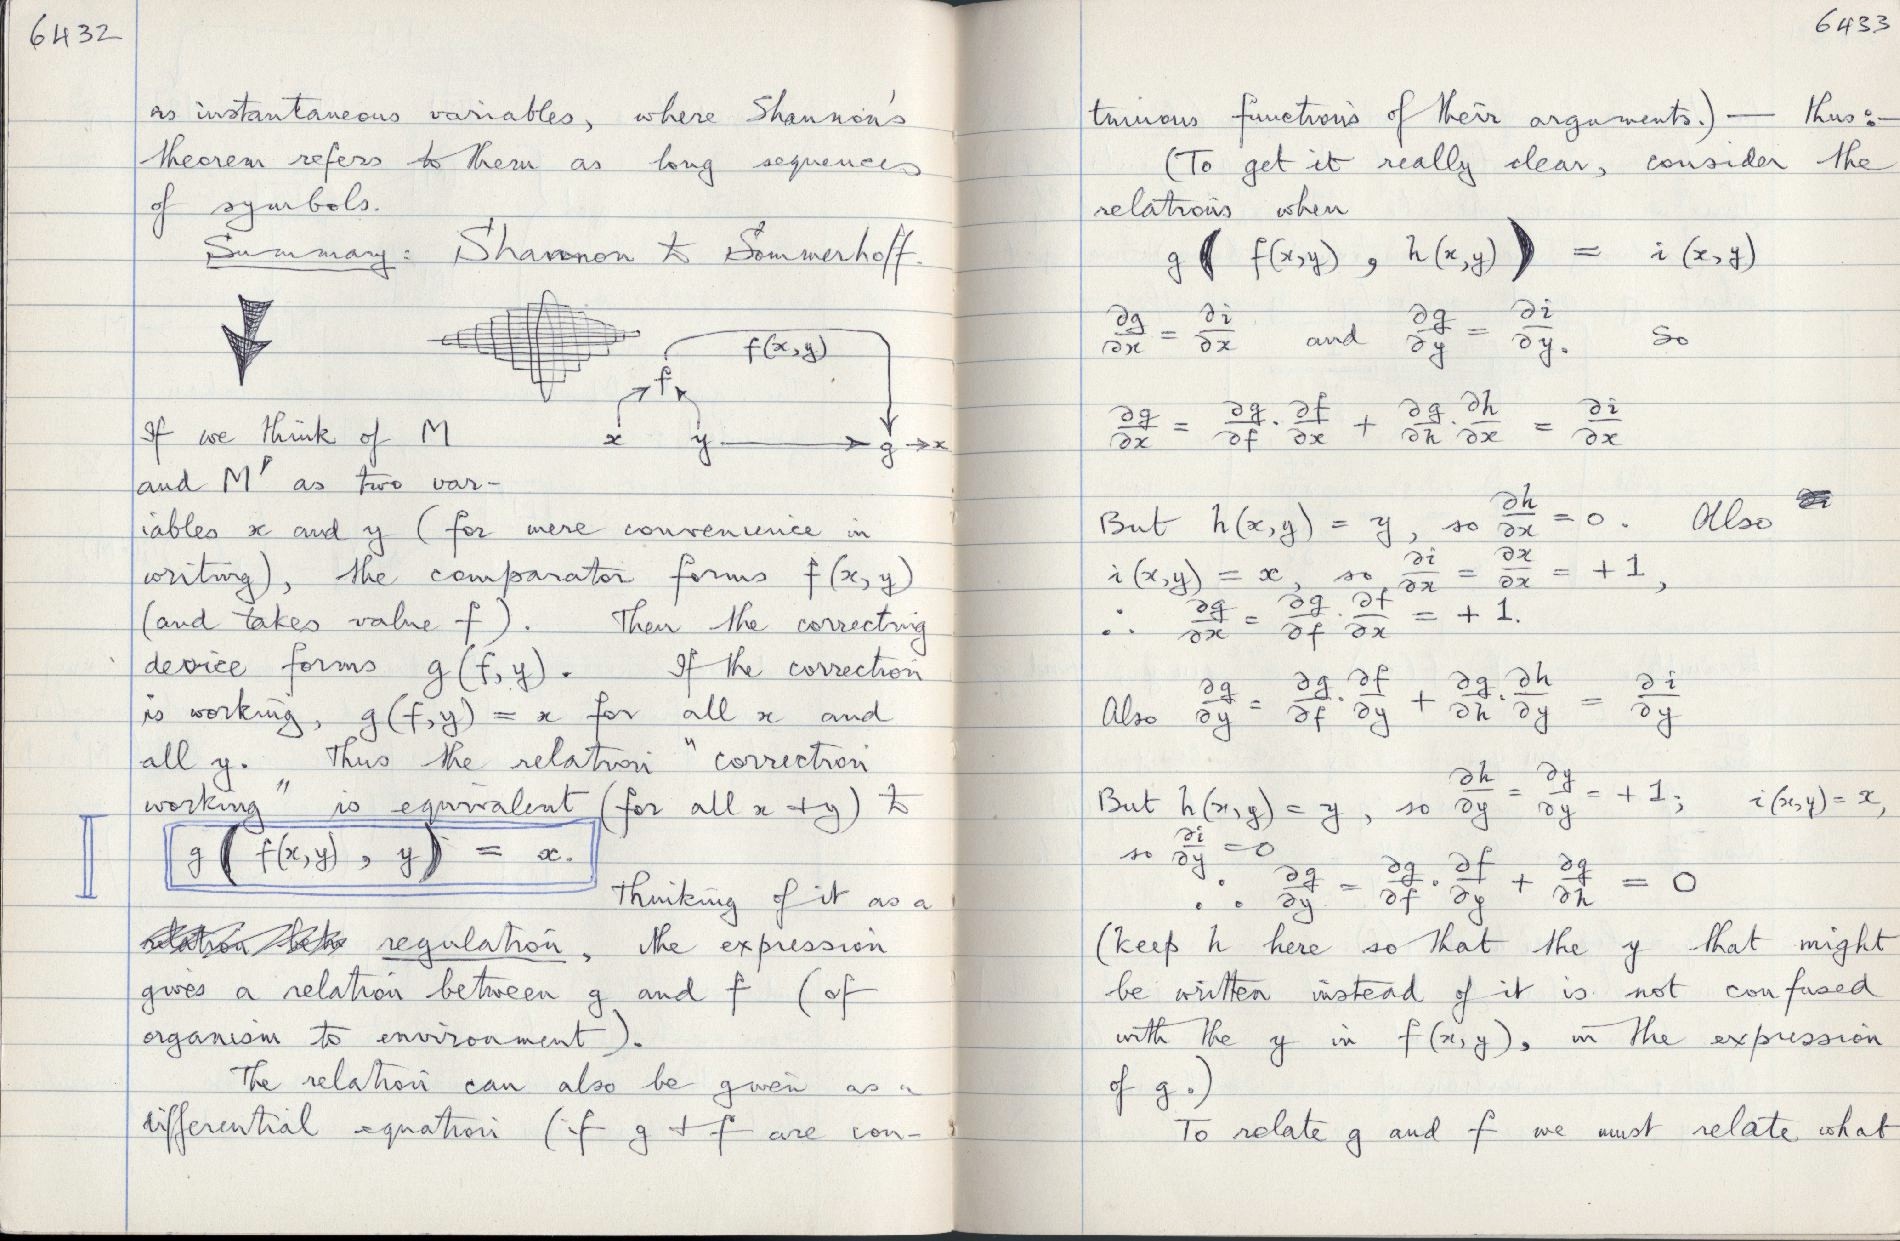 6432
as instantaneous variables, where Shannon's
theorem refers to them as long sequences
of symbols.
Summary: Shannon to Sommerhoff.
f(x,y)
f
x y g → x
If we think of M
and M' as two var-
iables x and y (for mere convenience in
writing), the comparator forms f(x,y)
(and takes value f). Then the correcting
device forms g(f,y). If the correction
is working, g(f,y) = x for all x and
all y. Thus the relation "correction
working" is equivalent (for all x + y) to
g( f(x,y) , y ) = x.
Thinking of it as a
regulation, the expression
gives a relation between g and f (of
organism to environment).
The relation can also be given as a
differential equation (if g + f are con-
6433
tinuous functions of their arguments.) — thus:—
(To get it really clear, consider the
relations when
g( f(x,y) , h(x,y) ) = i(x,y)
∂g/∂x = ∂i/∂x and ∂g/∂y = ∂i/∂y. So
∂g/∂x = ∂g/∂f · ∂f/∂x + ∂g/∂h · ∂h/∂x = ∂i/∂x
But h(x,y) = y, so ∂h/∂x = 0. Also
i(x,y) = x, so ∂i/∂x = ∂x/∂x = +1,
∴ ∂g/∂x = ∂g/∂f · ∂f/∂x = +1.
Also ∂g/∂y = ∂g/∂f · ∂f/∂y + ∂g/∂h · ∂h/∂y = ∂i/∂y
But h(x,y) = y, so ∂h/∂y = ∂y/∂y = +1; i(x,y) = x,
so ∂i/∂y = 0
∴ ∂g/∂y = ∂g/∂f · ∂f/∂y + ∂g/∂h = 0
(keep h here so that the y that might
be written instead of it is not confused
with the y in f(x,y), in the expression
of g.)
To relate g and f we must relate what